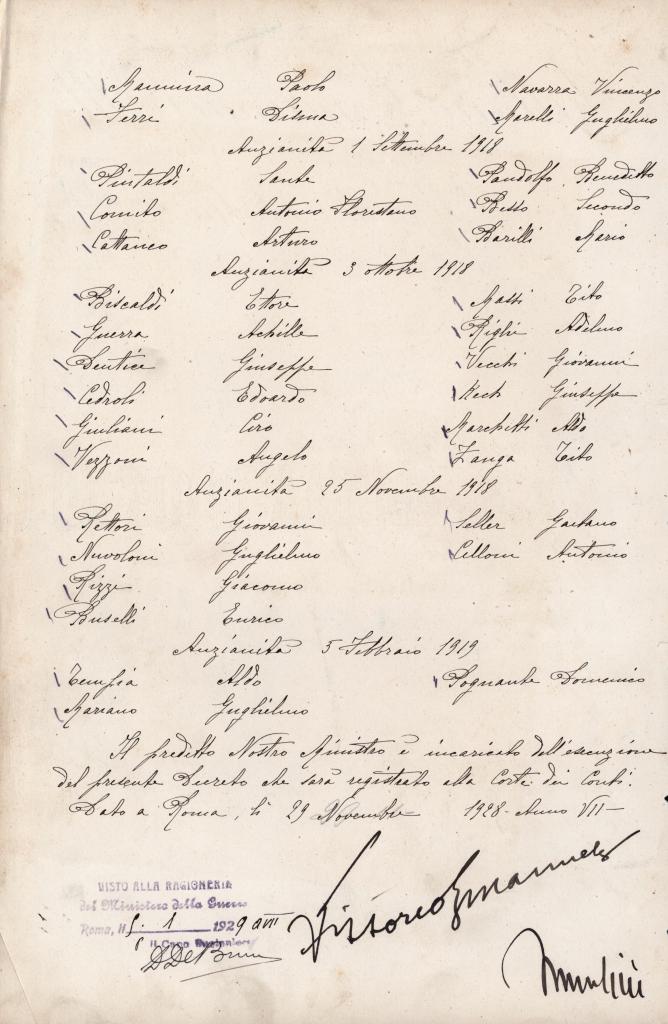 Mannina Paolo Navarra Vincenzo
Ferri Dilma Morelli Guglielmo
Anzianità 1 Settembre 1918
Pintaldi Sante Pandolfo Benedetto
Comito Antonio Florestano Besso Secondo
Cattaneo Arturo Barilli Mario
Anzianità 3 ottobre 1918
Biscaldi Ettore Massi Tito
Guerra Achille Righi Adelmo
Dentice Giuseppe Vecchi Giovanni
Cedroli Edoardo Rech Giuseppe
Giuliani Ciro Marchitti Aldo
Vezzoni Angelo Zanga Tito
Anzianità 25 Novembre 1918
Rettori Giovanni Seller Gaetano
Nuvoloni Guglielmo Lelloni Antonio
Rizzi Giacomo
Buselli Enrico
Anzianità 5 Febbraio 1919
Aldo Pognante Domenico
Mariano Guglielmo
Il predetto Nostro Ministro è incaricato dell'esecuzione
del presente Decreto che sarà registrato alla Corte dei Conti.
Dato a Roma, lì 29 Novembre 1928 - Anno VII -
Vittorio Emanuele
VISTO ALLA RAGIONERIA
del Ministero della Guerra
Roma, lì 1 1929 a VII
Il Capo Ragioniere
Mussolini